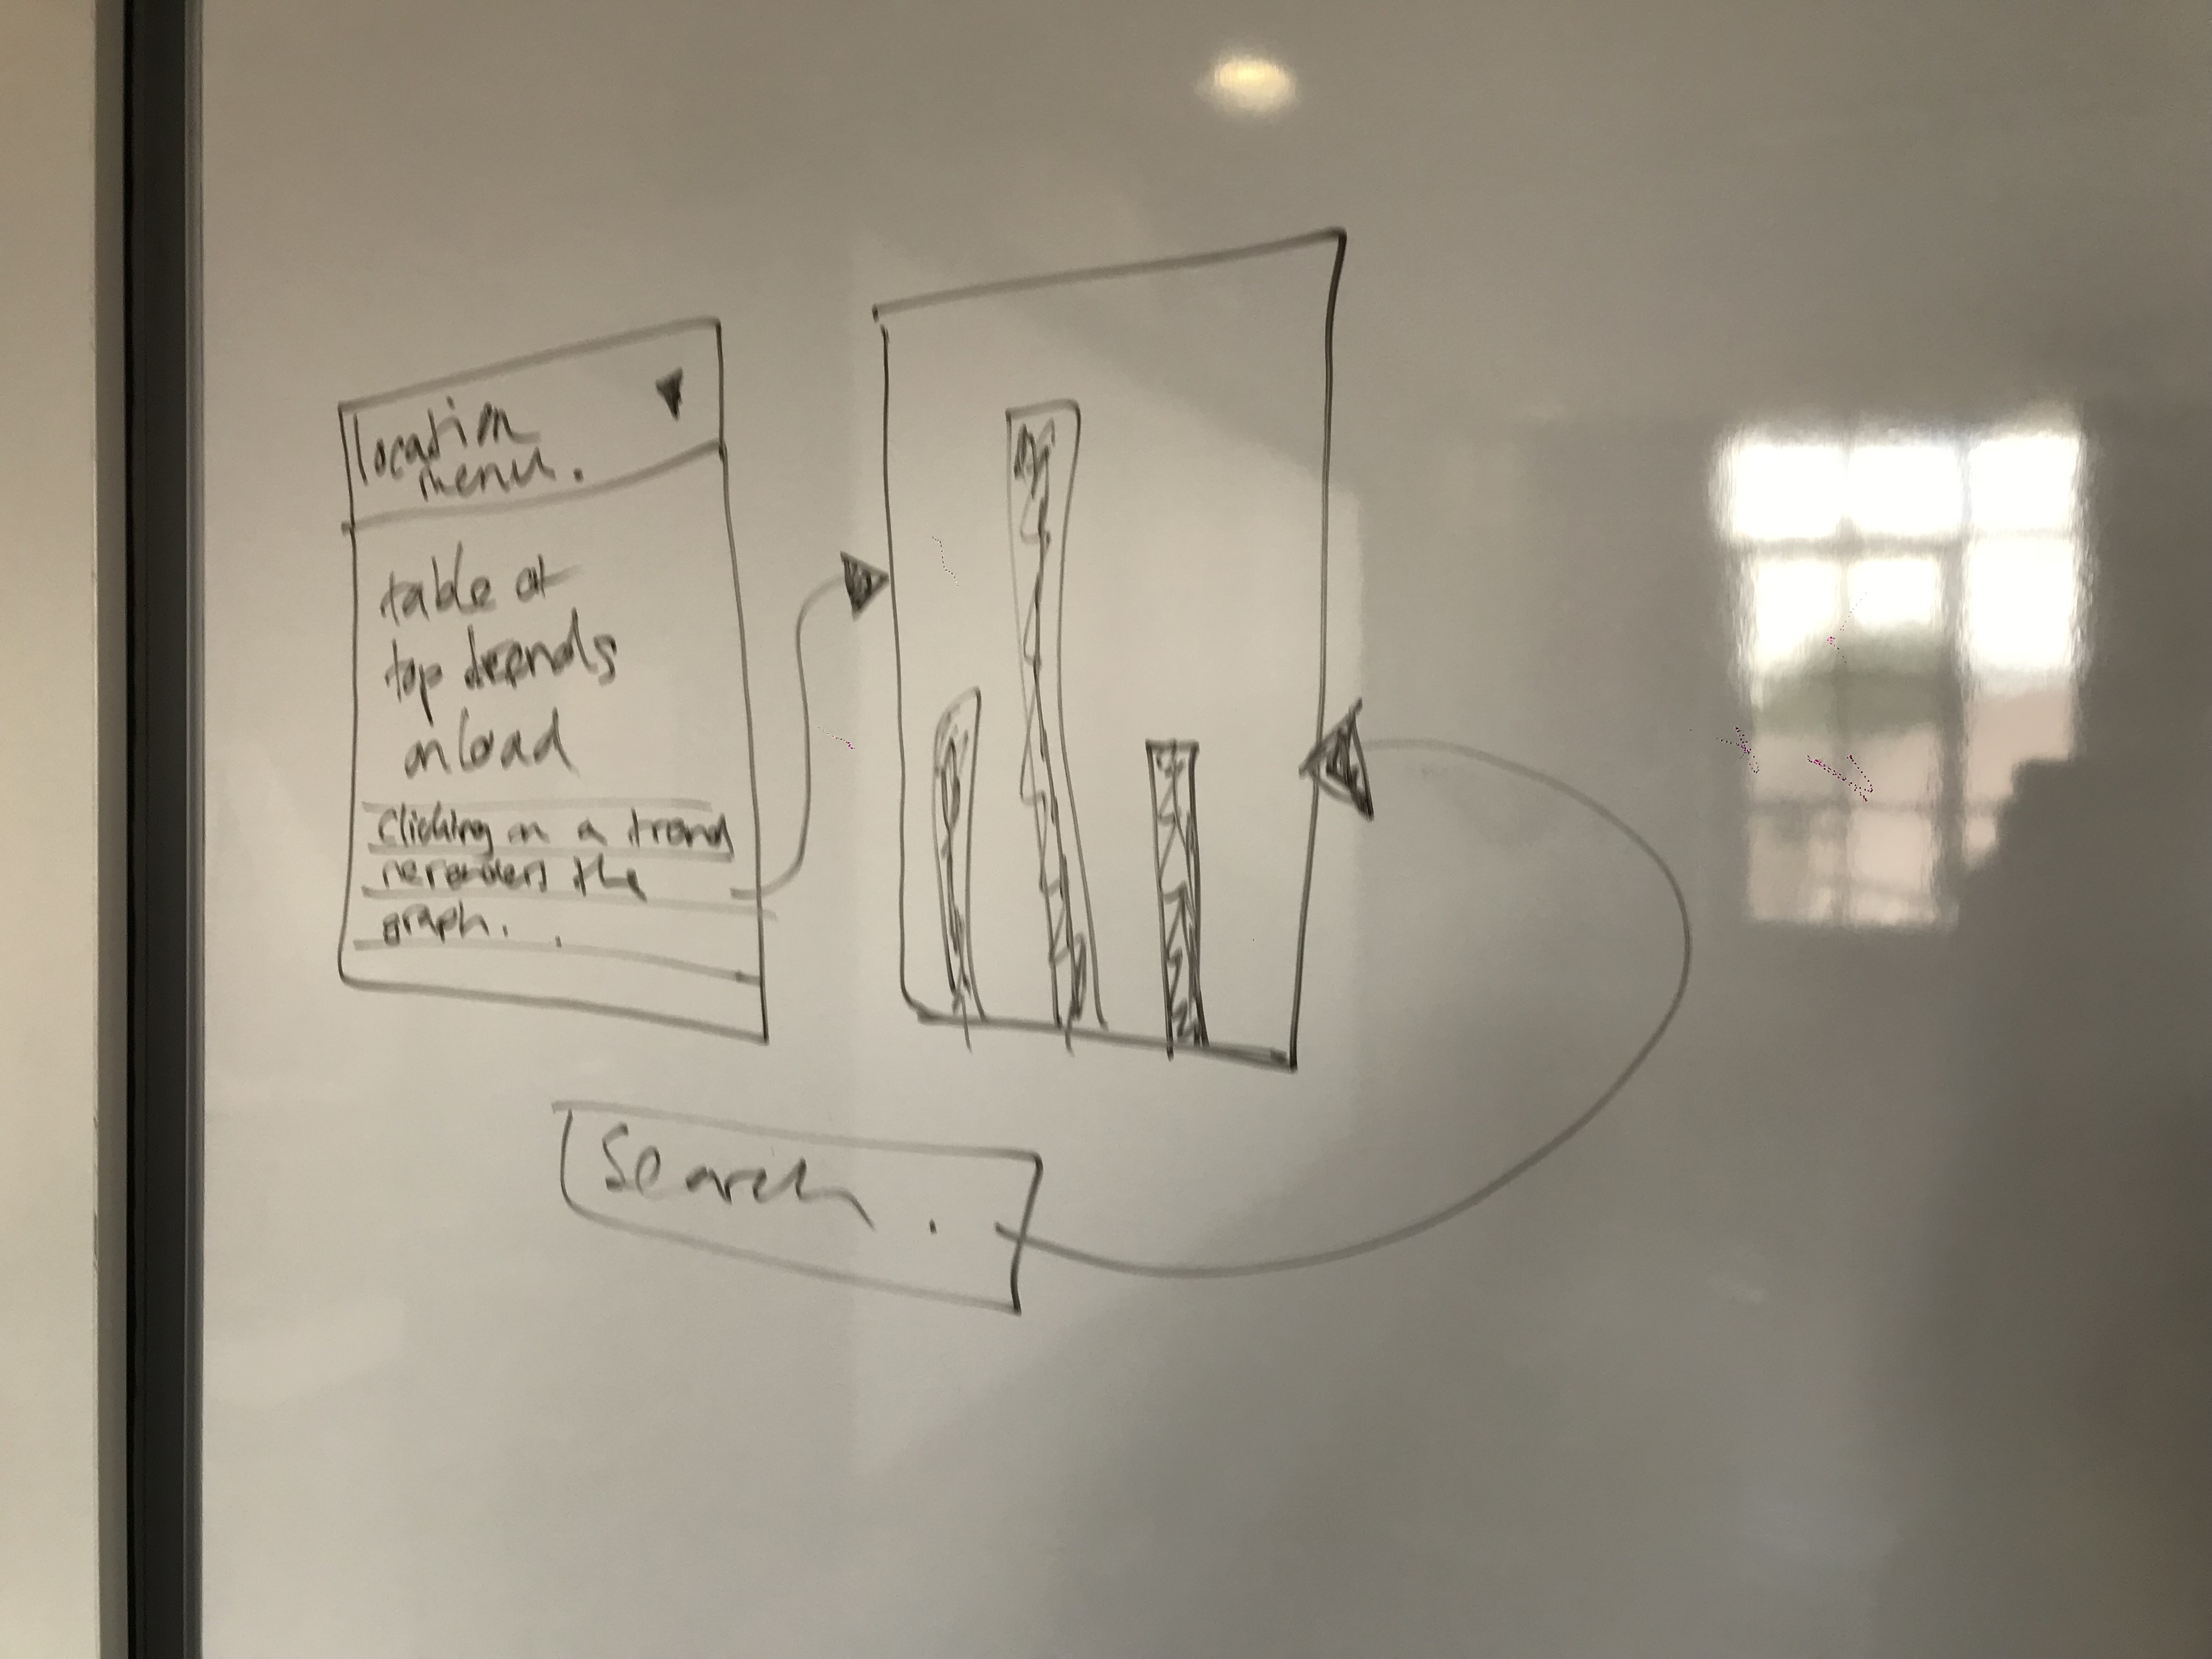 location
menu.
table of
top trends
onload
Clicking on a trend
rerenders the
graph.
Search.